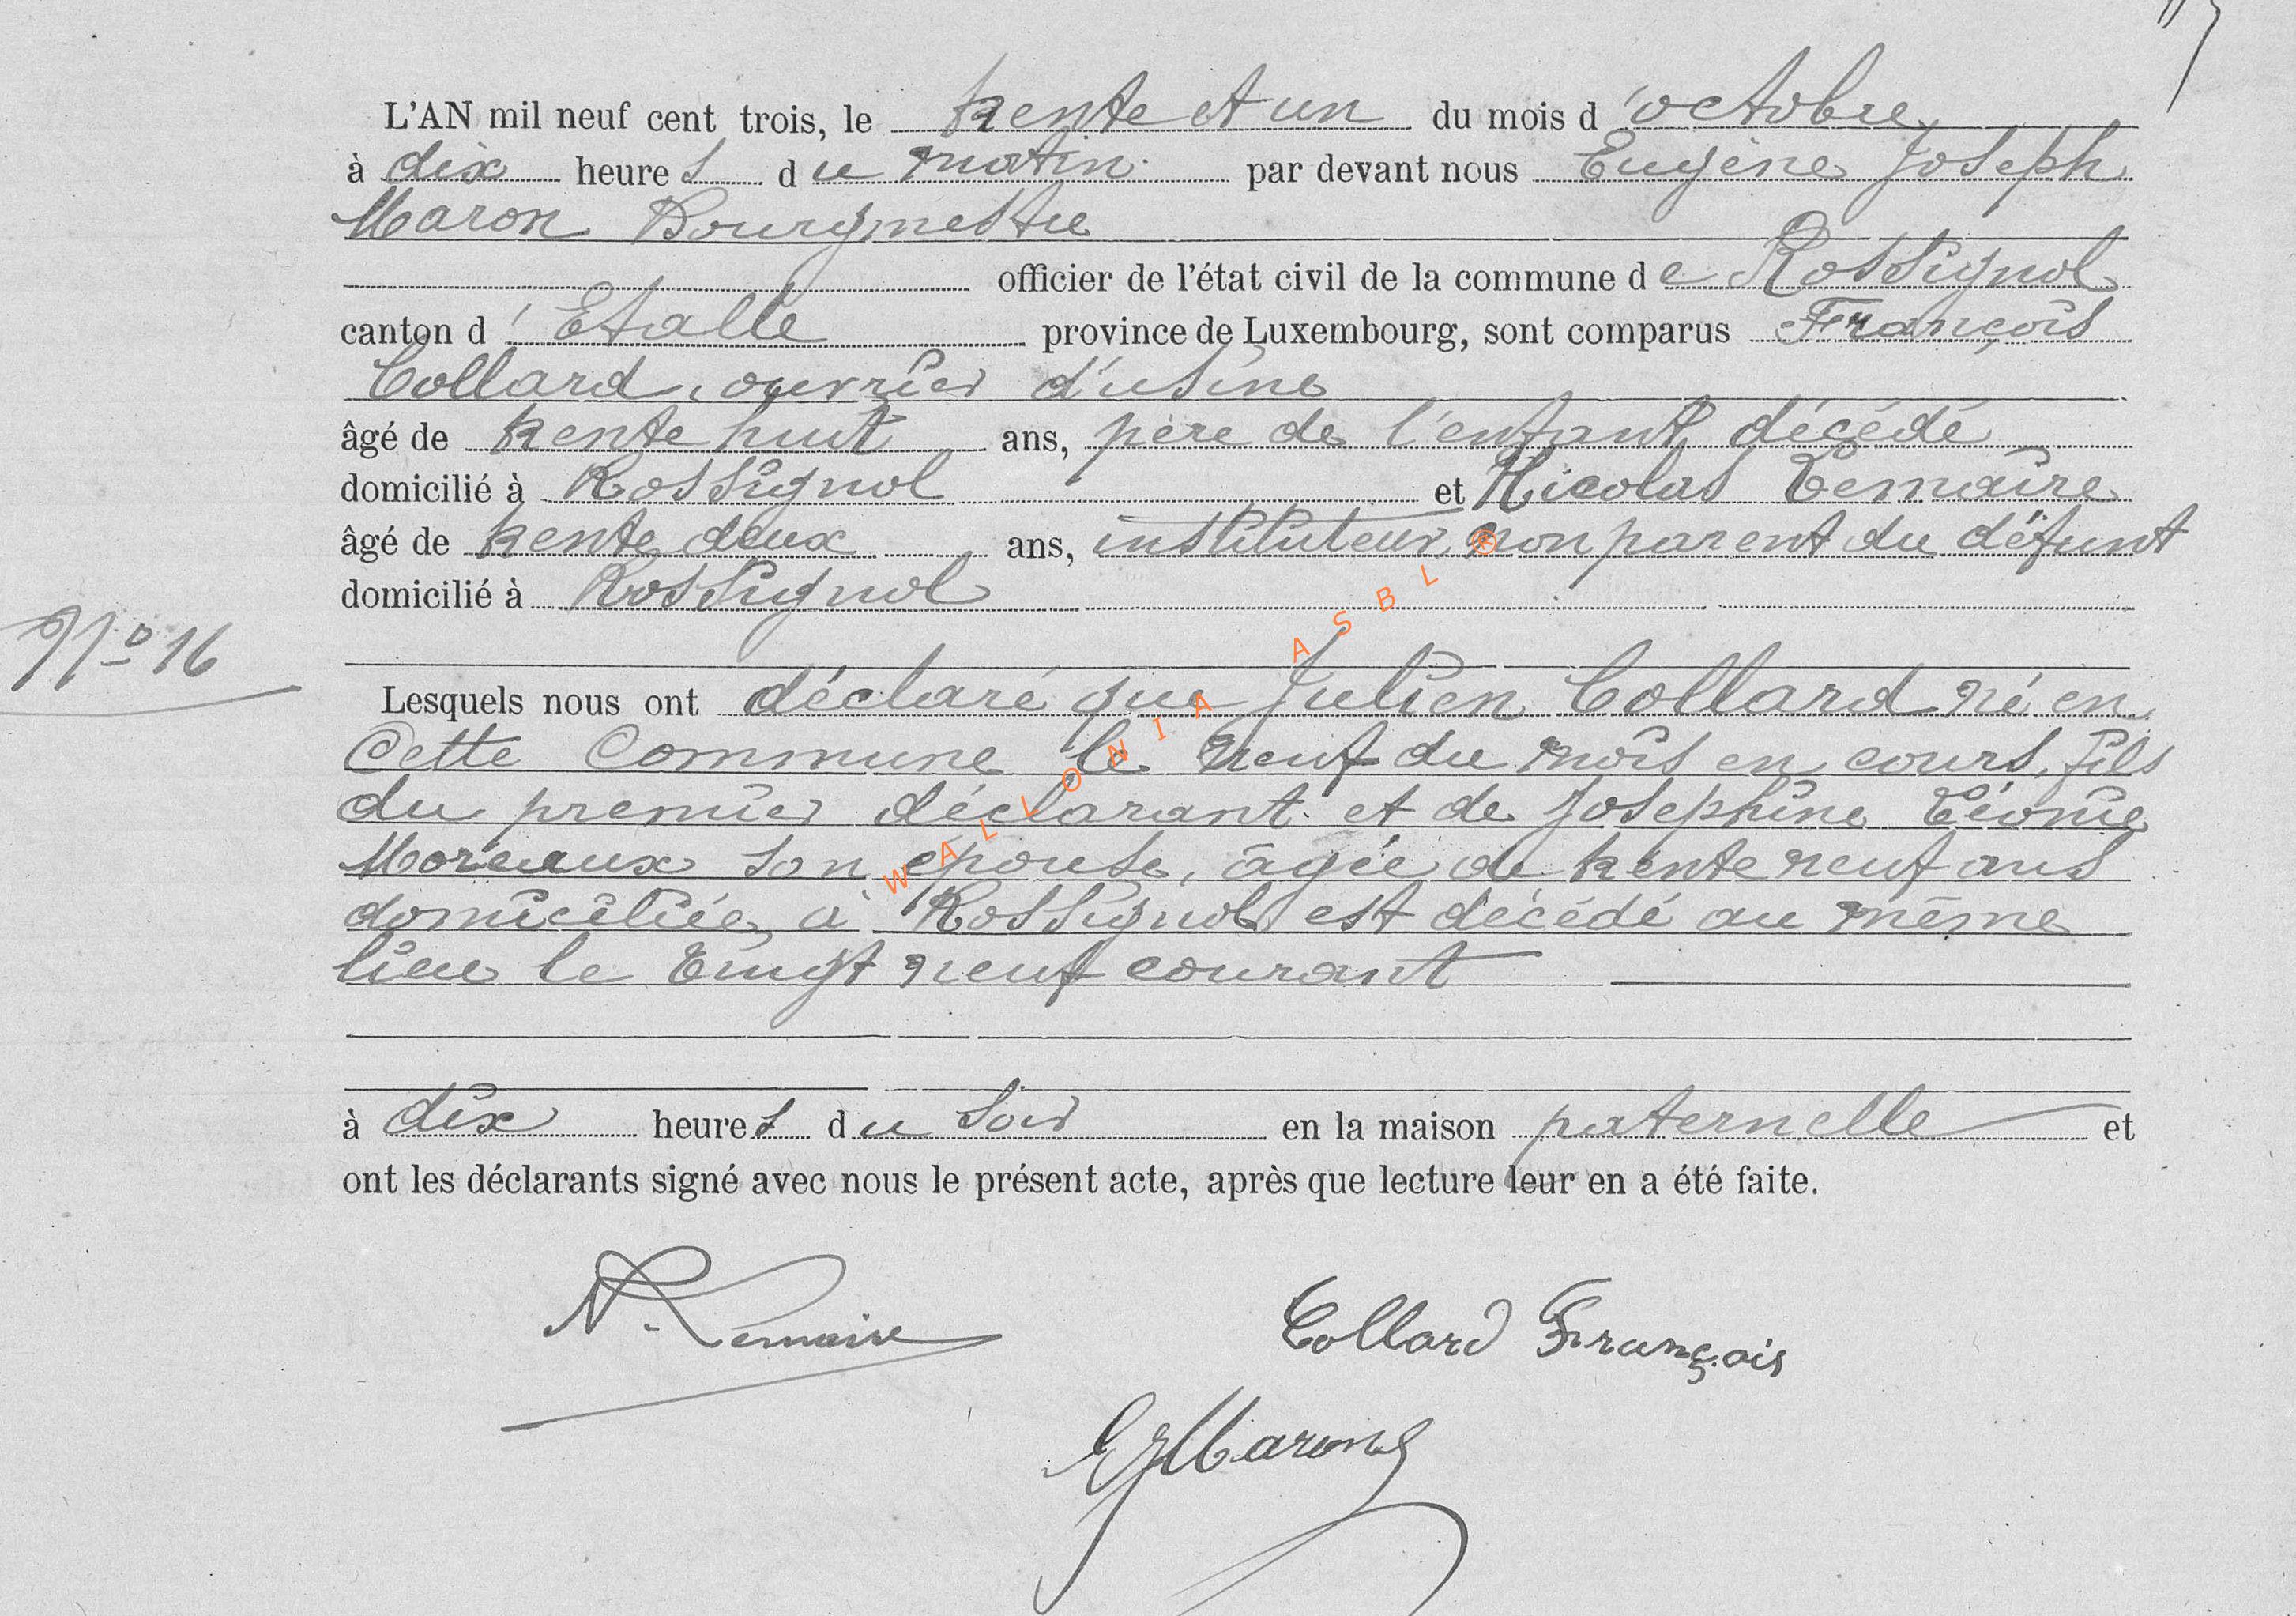 L'AN mil neuf cent trois, le trente et un du mois d'octobre
à dix heures du matin par devant nous Eugène Joseph
Maron Bourgmestre
officier de l'état civil de la commune de Rossignol
canton d'Etalle province de Luxembourg, sont comparus François
Collard, ouvrier d'usine
âgé de trente huit ans, père de l'enfant décédé
domicilié à Rossignol et Nicolas Lemaire
âgé de trente deux ans, instituteur, non parent du défunt
domicilié à Rossignol
N° 16
Lesquels nous ont déclaré que Julien Collard né en
cette Commune le neuf du mois en cours, fils
du premier déclarant et de Joséphine Léonie
Moreaux son épouse, âgée de trente neuf ans
domiciliée à Rossignol est décédé au même
lieu le vingt neuf courant
à dix heures du soir en la maison paternelle et
ont les déclarants signé avec nous le présent acte, après que lecture leur en a été faite.
N. Lemaire
Collard François
EJMaron
WALLONIA ASBL ®